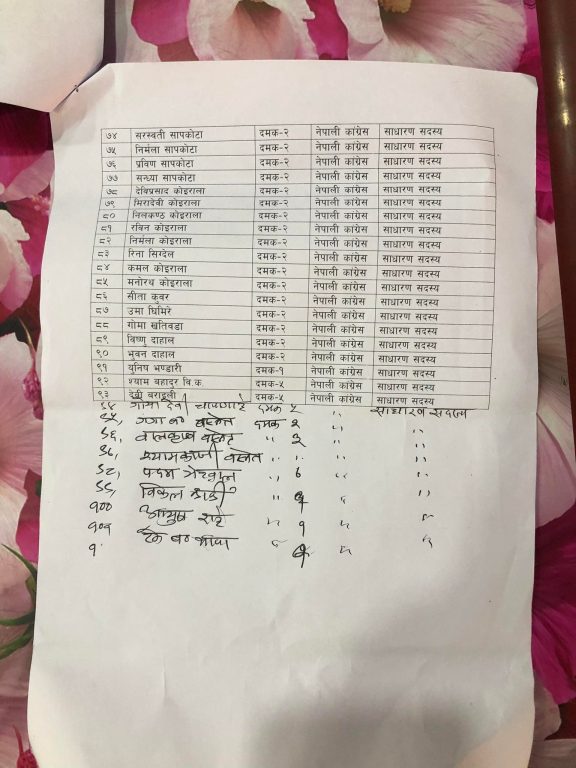 ७४ सरस्वती सापकोटा दमक-२ नेपाली कांग्रेस साधारण सदस्य
७५ निर्मला सापकोटा दमक-२ नेपाली कांग्रेस साधारण सदस्य
७६ प्रविण सापकोटा दमक-२ नेपाली कांग्रेस साधारण सदस्य
७७ सन्ध्या सापकोटा दमक-२ नेपाली कांग्रेस साधारण सदस्य
७८ देविप्रसाद कोइराला दमक-२ नेपाली कांग्रेस साधारण सदस्य
७९ मिरादेवी कोइराला दमक-२ नेपाली कांग्रेस साधारण सदस्य
८० निलकण्ठ कोइराला दमक-२ नेपाली कांग्रेस साधारण सदस्य
८१ रविन कोइराला दमक-२ नेपाली कांग्रेस साधारण सदस्य
८२ निर्मला कोइराला दमक-२ नेपाली कांग्रेस साधारण सदस्य
८३ रिना सिग्देल दमक-२ नेपाली कांग्रेस साधारण सदस्य
८४ कमल कोइराला दमक-२ नेपाली कांग्रेस साधारण सदस्य
८५ मनोरथ कोइराला दमक-२ नेपाली कांग्रेस साधारण सदस्य
८६ सीता कुवर दमक-२ नेपाली कांग्रेस साधारण सदस्य
८७ उमा घिमिरे दमक-२ नेपाली कांग्रेस साधारण सदस्य
८८ गोमा खतिवडा दमक-२ नेपाली कांग्रेस साधारण सदस्य
८९ बिष्णु दाहाल दमक-२ नेपाली कांग्रेस साधारण सदस्य
९० भुवन दाहाल दमक-२ नेपाली कांग्रेस साधारण सदस्य
९१ युनिष भण्डारी दमक-१ नेपाली कांग्रेस साधारण सदस्य
९२ श्याम बहादुर बि.क. दमक-५ नेपाली कांग्रेस साधारण सदस्य
९३ देवी बराइली दमक-५ नेपाली कांग्रेस साधारण सदस्य
९४ देवी दमक ५ " साधारण सदस्य
९५, दमक २ " "
९६, " २ " "
९७, " " " "
९८, पदम " ७ " "
९९,
१०० " १ " "
१०१ " " "